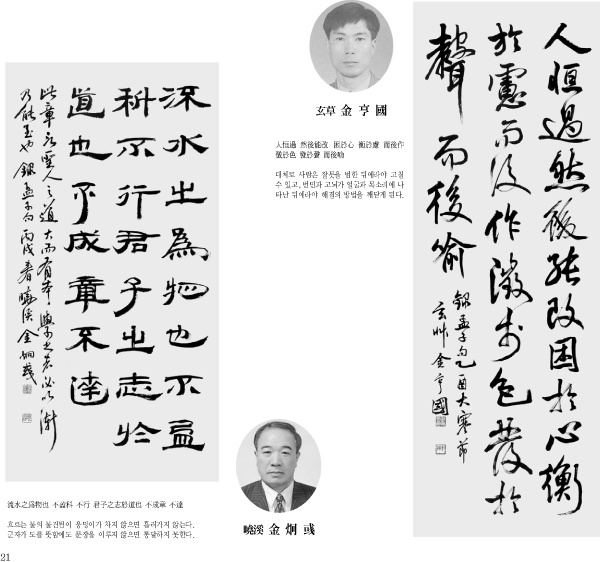 人恒過然後能改困於心衡
於慮而後作徵於色發於
聲而後喻
錄孟子句乙酉大寒節
玄艸金亨國
玄草 金 亨 國
人恒過 然後能改 困於心 衡於慮 而後作
徵於色 發於聲 而後喩
대체로 사람은 잘못을 범한 뒤에라야 고칠
수 있고, 번민과 고뇌가 얼굴과 목소리에 나
타난 뒤에라야 해결의 방법을 깨닫게 된다.
流水之爲物也不盈
科不行君子之志於
道也不成章不達
此章言聖人之道大而有本學之者必以漸
乃能至也 錄孟子句 丙戌春 曉溪 金炯彧
曉溪 金 炯 彧
流水之爲物也 不盈科 不行 君子之志於道也 不成章 不達
흐르는 물의 물건됨이 웅덩이가 차지 않으면 흘러가지 않는다.
군자가 도를 뜻함에도 문장을 이루지 않으면 통달하지 못한다.
21